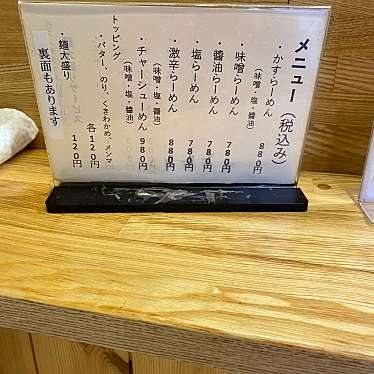 メニュー(税込み)
・かすらーめん 880円
(味噌・塩・醬油)
・味噌らーめん 780円
・醬油らーめん 780円
・塩らーめん 780円
・激辛らーめん 880円
・チャーシューめん 980円
(味噌・塩・醬油)
トッピング
・バター、のり、くきわかめ、メンマ
各120円
・麺大盛り 120円
裏面もあります